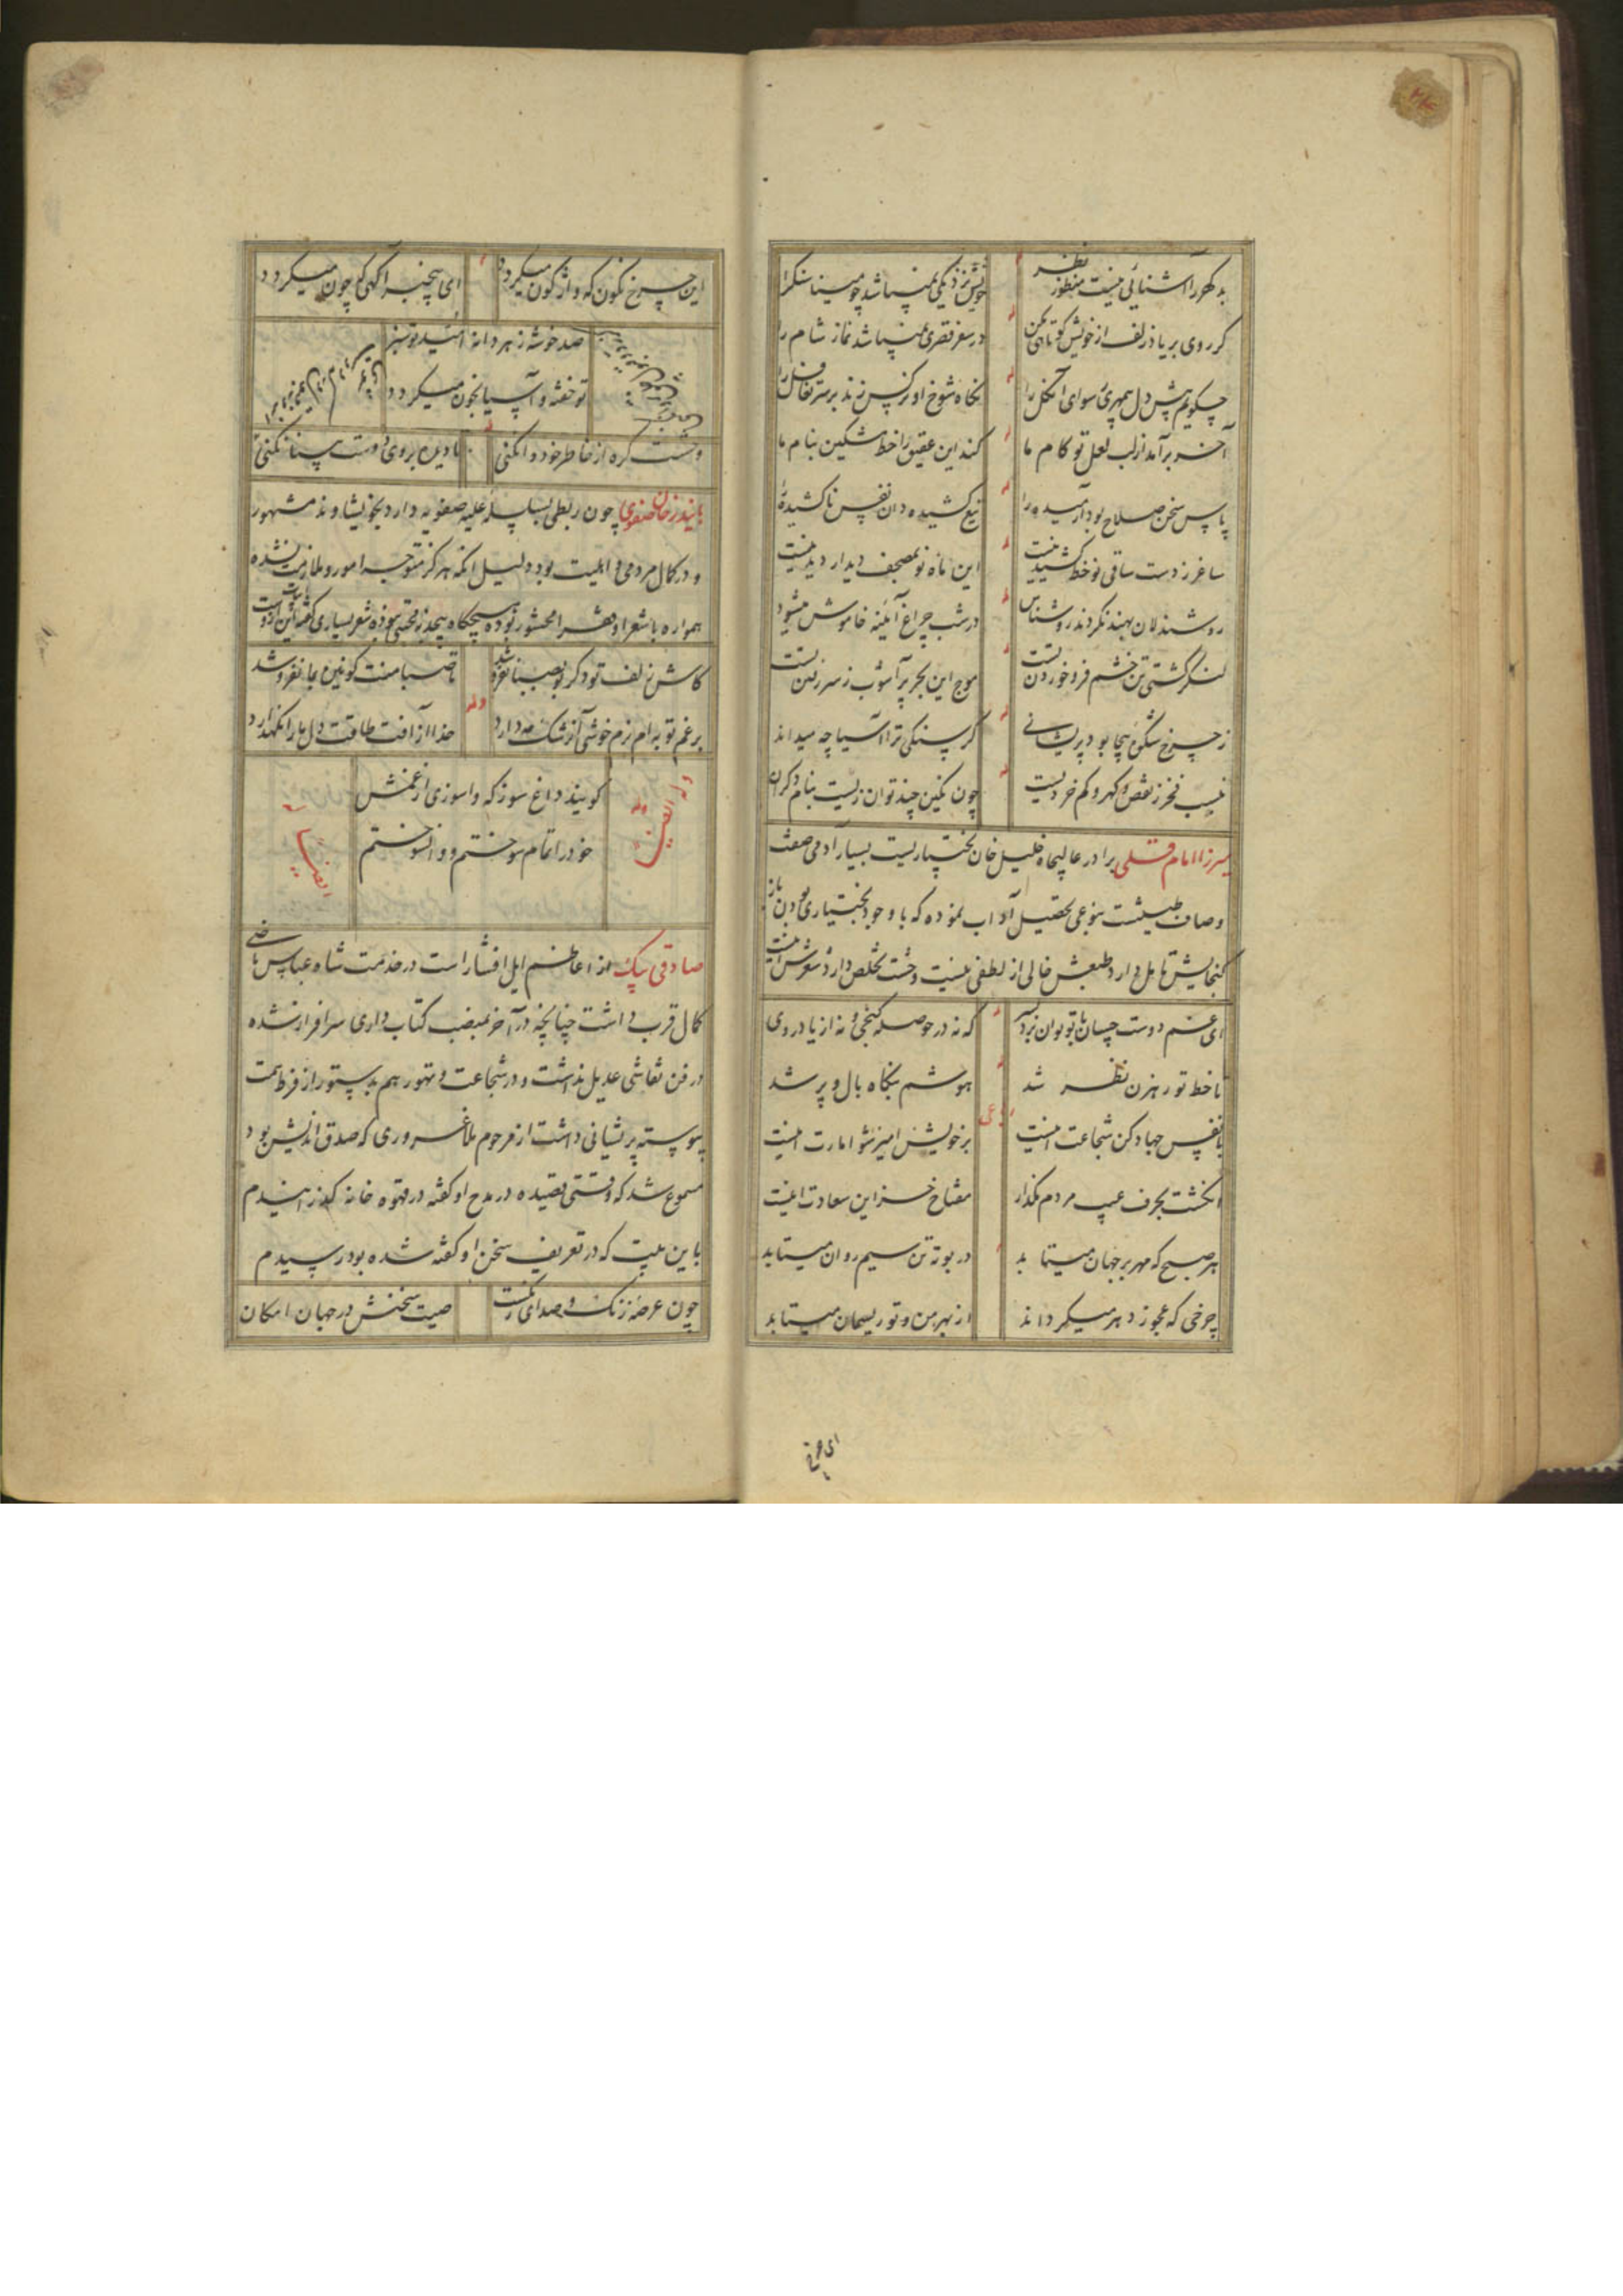 بد گهر را آشنائی نیست منظور نظر خویش نزدیکی نمیباشد چو مینا سنگ را
گر روی بر یاد زلف از خویش کوتاهی مکن در سفر قصری نمیباشد نماز شام را
چگویم پیش دل بیمهری سودای آن گل را نگاه شوخ او نرگس زند بر سر تغافل را
آخر برآمد از لب لعل تو کام ما کند این عقیق را خط مشکین بنام ما
پاس سخن صلاح بود آرمیده را تیغ کشیده دان نفس ناکشیده را
ساغر ز دست ساقی نو خط کشیدنیست این ماه نو بمصحف دیدار دیدنیست
روشندلان بهند نگردند روشناس در شب چراغ آینه خاموش میشود
لنگر کشتی تن خشم فرو خوردن تست موج این بحر پر آشوب ز سر رفتن تست
ز چرخ شکوه بیجا بود پریشانی گرسنگی ترا آسیا چه میداند
نیست فخر ز نقص گهر و کم خردیست چون نگین چند توان زیست بنام دگران
میرزا امام قلی برادر عالیجاه خلیل خان بختیاریست بسیار آدمی صفت
و صاف طینتست بنوعی تحصیل آداب نموده که با وجود بختیاری بودن باز
گنجایش تامل دارد طبعش خالی از لطفی نیست وحشت تخلص دارد شعرش اینست
ای غم دوست چسان با تو توان برد بسر که نه در حوصله گنجی و نه از یاد روی
تا خط تو رهزن نظر شد هوشم بنگاه بال و پر شد
رباعی
با نفس جهاد کن شجاعت اینست بر خویش امیر شو امارت اینست
انگشت بحرف عیب مردم مگذار مفتاح خزاین سعادت اینست
هر صبح که مهر بر جهان میتابد در بوته تن سیم روان میتابد
چرخی که عجوز دهر میگرداند از بهر من و تو ریسمان میتابد
این چرخ
این چرخ نگون که واژگون میگردد ای بیخبر آگهی که چون میگردد
صد خوشه ز هر دانه امید تو سبز
تو خفته و آسیا بخون میگردد
وحشت گره از خاطر خود وا نکنی تا دیده بروی دوست بینا نکنی
بایندرخان صفوی چون ربطی بسلسله علیه صفویه دارد بخویشاوند مشهور
و در کمال مردمی و اهلیت بود دلیل آنکه هرگز متوجه امور و ملازمت نشده
همواره با شعرا و فقرا محشور بوده هیچگاه بیجذبه محبتی نبوده شعر بسیاری گفته این ابیات ازوست
کاش زلف تو دگر بو بصبا نفروشد تا صبا منت کونین بما نفروشد
وله
برغم تو به ام بزم خوشی آن شکن دارد خدا از آفت طاقت دل ما را نگهدارد
وله ایضاً
گویند داغ سوز که واسوزی از غمش
خود را تمام سوختم و وانسوختم
ایضاً
صادقی بیک از اعاظم ایل افشار است در خدمت شاه عباس ماضی
کمال قرب داشت چنانچه در آخر بمنصب کتاب داری سرافراز شده
در فن نقاشی عدیل نداشت و در شجاعت و تهور هم بدستور از فرط همت
پیوسته پریشانی داشت از مرحوم ملا غروری که صدق اندیش بود
مسموع شد که وقتی قصیده در مدح او گفته در قهوه خانه گذرانیدم
باین بیت که در تعریف سخن او گفته شده بود رسیدم
چون عرصه زنگ و صدای زنگست صیت سخنش در جهان امکان